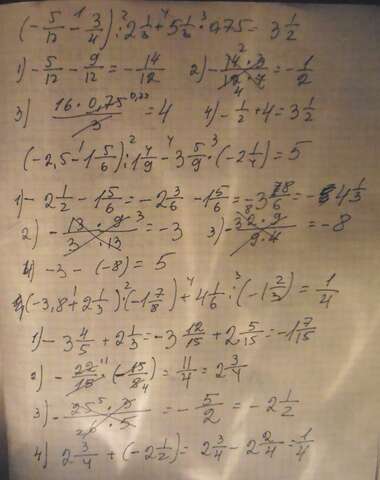 (-5/12 - 3/4) : 2 1/3 + 5 1/3 · 0,75 = 3 1/2
1) -5/12 - 9/12 = -14/12 2) -14·3/12·7 = -1/2
3) 16·0,75/3 = 4 4) -1/2 + 4 = 3 1/2
(-2,5 - 1 5/6) : 1 4/9 - 3 5/9 · (-2 1/4) = 5
1) -2 1/2 - 1 5/6 = -2 3/6 - 1 5/6 = -3 8/6 = -4 1/3
2) -13·9/3·13 = -3 3) -32·9/9·4 = -8
4) -3 - (-8) = 5
(-3,8 + 2 1/3) : (-1 7/8) + 4 1/6 : (-1 2/3) = 1/4
1) -3 4/5 + 2 1/3 = -3 12/15 + 2 5/15 = -1 7/15
2) -22/15 · (-15/8) = 11/4 = 2 3/4
3) -25·3/2·5 = -5/2 = -2 1/2
4) 2 3/4 + (-2 1/2) = 2 3/4 - 2 2/4 = 1/4